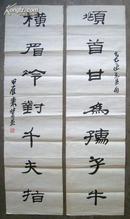 頫首甘為孺子牛
橫眉冷對千夫指